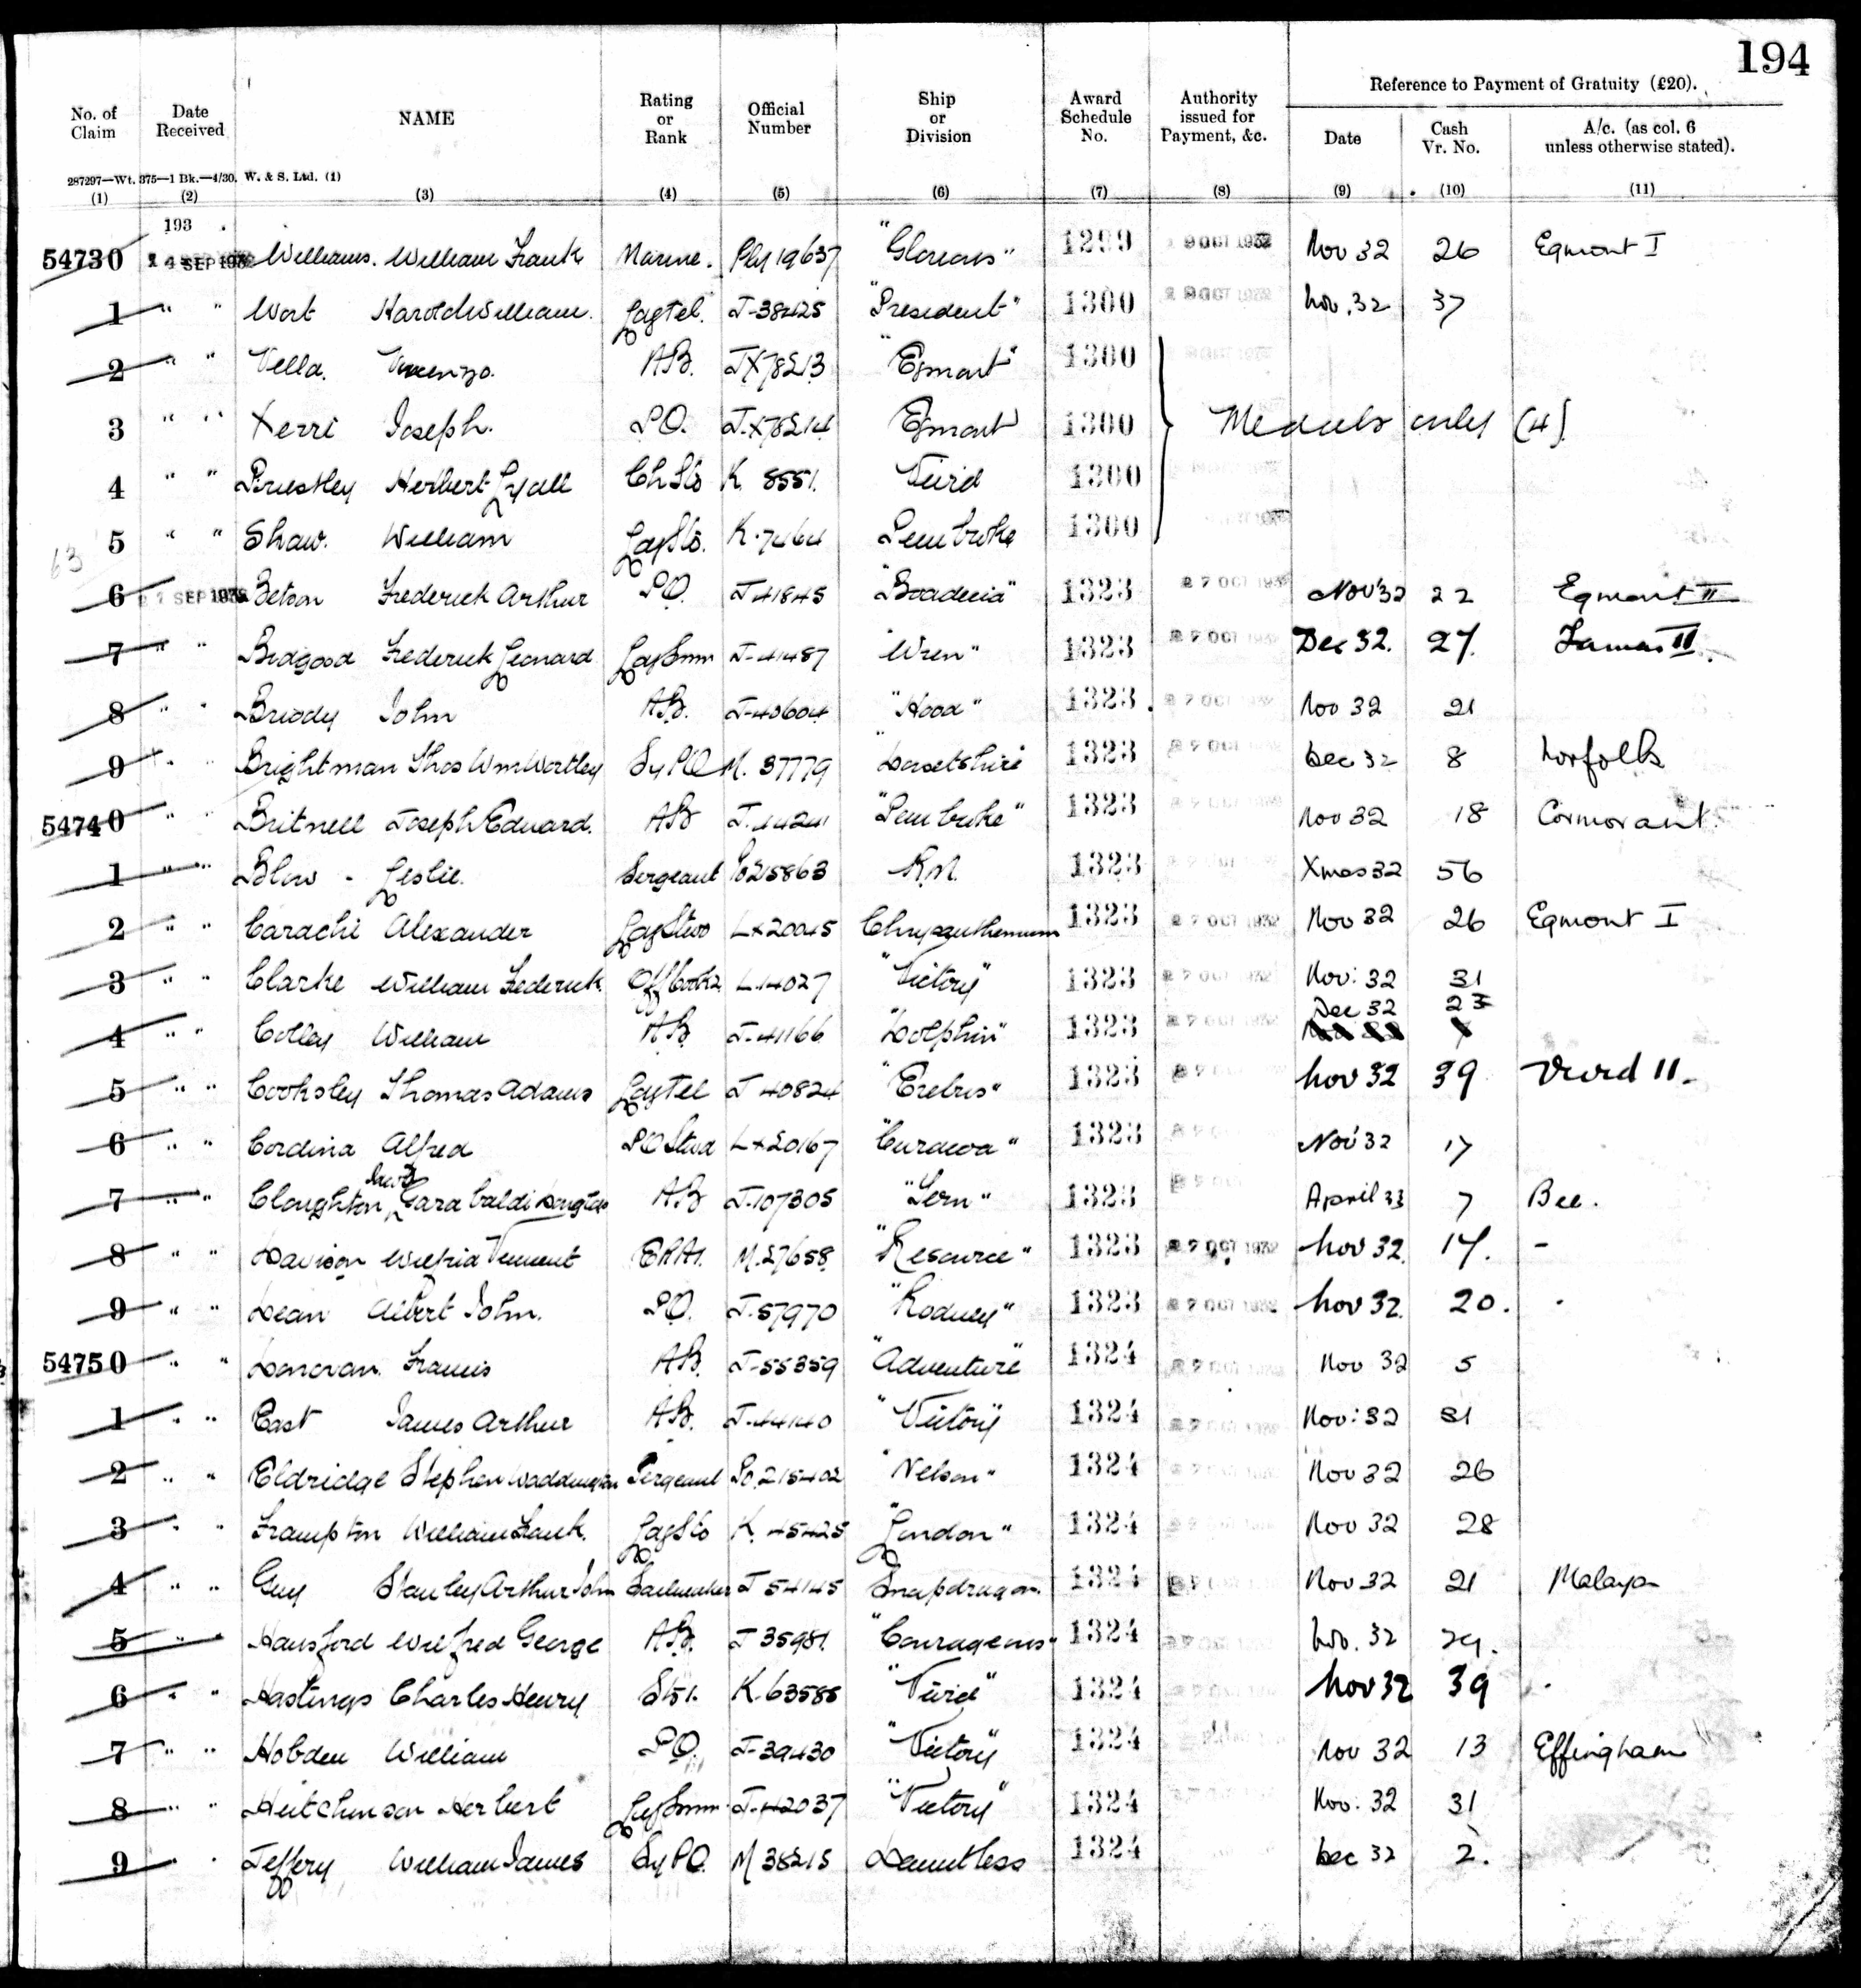 194
Reference to Payment of Gratuity (£20).
No. of Claim Date Received NAME Rating or Rank Official Number Ship or Division Award Schedule No. Authority issued for Payment, &c. Date Cash Vr. No. A/c. (as col. 6 unless otherwise stated).
287297—Wt. 375—1 Bk.—4/30. W. & S. Ltd. (1)
(1) (2) (3) (4) (5) (6) (7) (8) (9) (10) (11)
193
54730 24 SEP 1932 Williams. William Frank Marine. Ply 19637 "Glorious" 1299 19 OCT 1932 Nov 32 26 Egmont I
1 " " Wort Harold William. Lgtel. J-38425 "President" 1300 Nov. 32 37
2 " " Vella. Vincenzo. AB. JX78213 "Egmont" 1300
3 " " Xerri Joseph. PO. J.X78214 Egmont 1300 Medals only (4)
4 " " Priestley Herbert Lyall Ch Sto K. 8551. Vivid 1300
5 " " Shaw. William LgSto. K.7464 Pembroke 1300
63
6 27 SEP 1932 Betson Frederick Arthur PO. J41845 "Boadicia" 1323 27 OCT 1932 Nov '32 22 Egmont II
7 " " Bidgood Frederick Leonard LgSmn J-41487 "Wren" 1323 27 OCT 1932 Dec 32. 27. II
8 " " Briody John AB. J-43604 "Hood" 1323. 27 OCT Nov 32 21
9 " " Brightman Thos Wm Wortley Sy PO M. 37779 "Dorsetshire" 1323 27 OCT Dec 32 8 Norfolk
54740 " " Britnell Joseph Edward. AB J.44241 "Pembroke" 1323 Nov 32 18 Cormorant.
1 " " Blow - Leslie. Sergeant Po215863 R.M. 1323 Xmas 32 56
2 " " Carachi Alexander LgStwd LX20045 Chrysanthemum 1323 27 OCT 1932 Nov 32 26 Egmont I
3 " " Clarke William Frederick Off Cook2 L.14027 "Victory" 1323 27 OCT 1932 Nov: 32 31
4 " " Colley William AB J-41166 "Dolphin" 1323 27 OCT 1932 Dec 32 23
5 " " Cooksley Thomas Adams Lgtel J 40824 "Erebus" 1323 Nov 32 39 Vivid II.
6 " " Cordina Alfred PO Stwd LX20167 "Curacoa" 1323 Nov '32 17
7 " " Cloughton, Garabaldi Douglas AB J-107305 "Tern" 1323 April 33 7 Bee.
8 " " Davison Wilfrid Vincent ERA1. M.27658 "Resource" 1323 27 OCT 1932 Nov 32. 14. -
9 " " Dean Albert John. PO. J.57970 "Rodney" 1323 27 OCT 1932 Nov 32. 20.
54750 " " Donovan. Francis AB. J-55359 "Adventure" 1324 27 OCT 1932 Nov 32 5
1 " " East James Arthur AB. J-44140 "Victory" 1324 Nov: 32 31
2 " " Eldridge Stephen Waddington Sergeant Po.215402 "Nelson" 1324 Nov 32 26
3 " " Frampton William Frank. LgSto K. 45425 "London" 1324 Nov 32 28
4 " " Guy Stanley Arthur John Sailmaker J 54145 Snapdragon. 1324 Nov 32 21 Malaya
5 " " Hansford Wilfred George AB. J 35981. "Courageous" 1324 Nov. 32 29.
6 " " Hastings Charles Henry Sto1. K.63585 "Vivid" 1324 Nov 32 39
7 " " Hobden William PO. J-39430 "Victory" 1324 Nov 32 13 Effingham
8 " " Hutchinson Herbert LgSmn J-42037 "Victory" 1324 Nov: 32 31
9 " " Jeffery William James Sy PO. M 38215 Dauntless 1324 Dec 32 2.